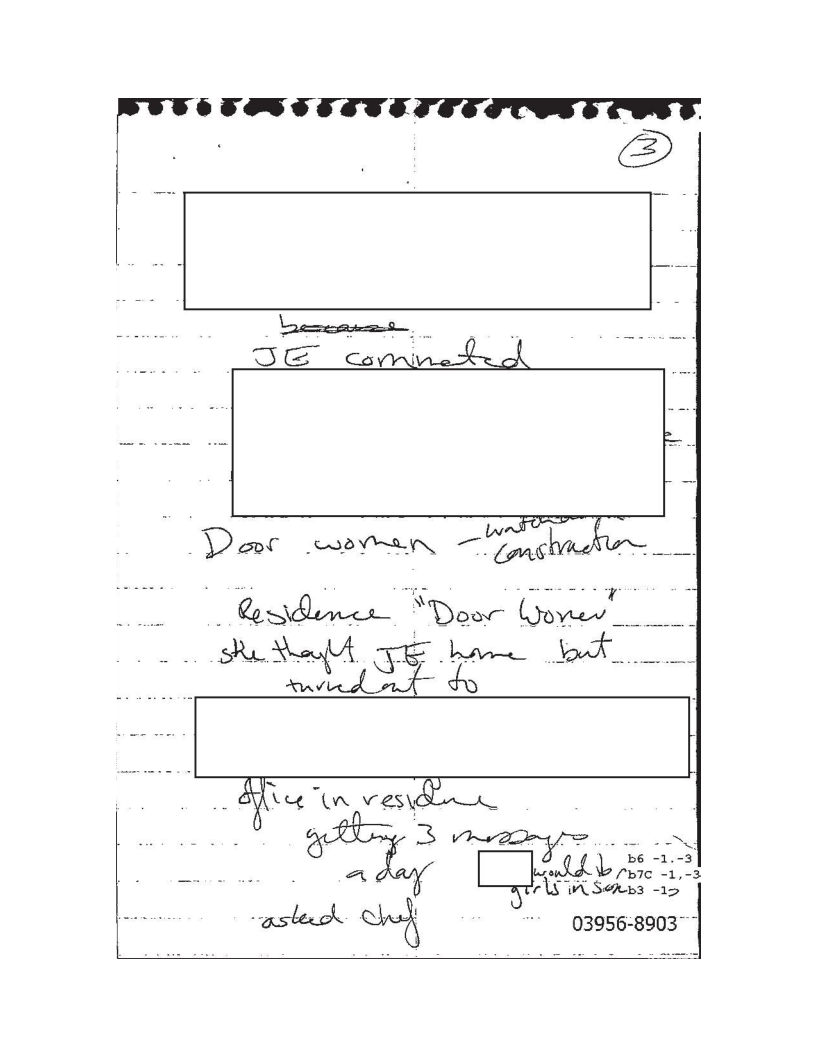 3
because
JE commeted
Door women - watching
construction
Residence "Door Women"
she thought JE home but
turned out to
office in residence
getting 3 messages
a day
would b
b6 -1,-3
b7C -1,-3
girls in
b3 -1
asked chef
03956-8903